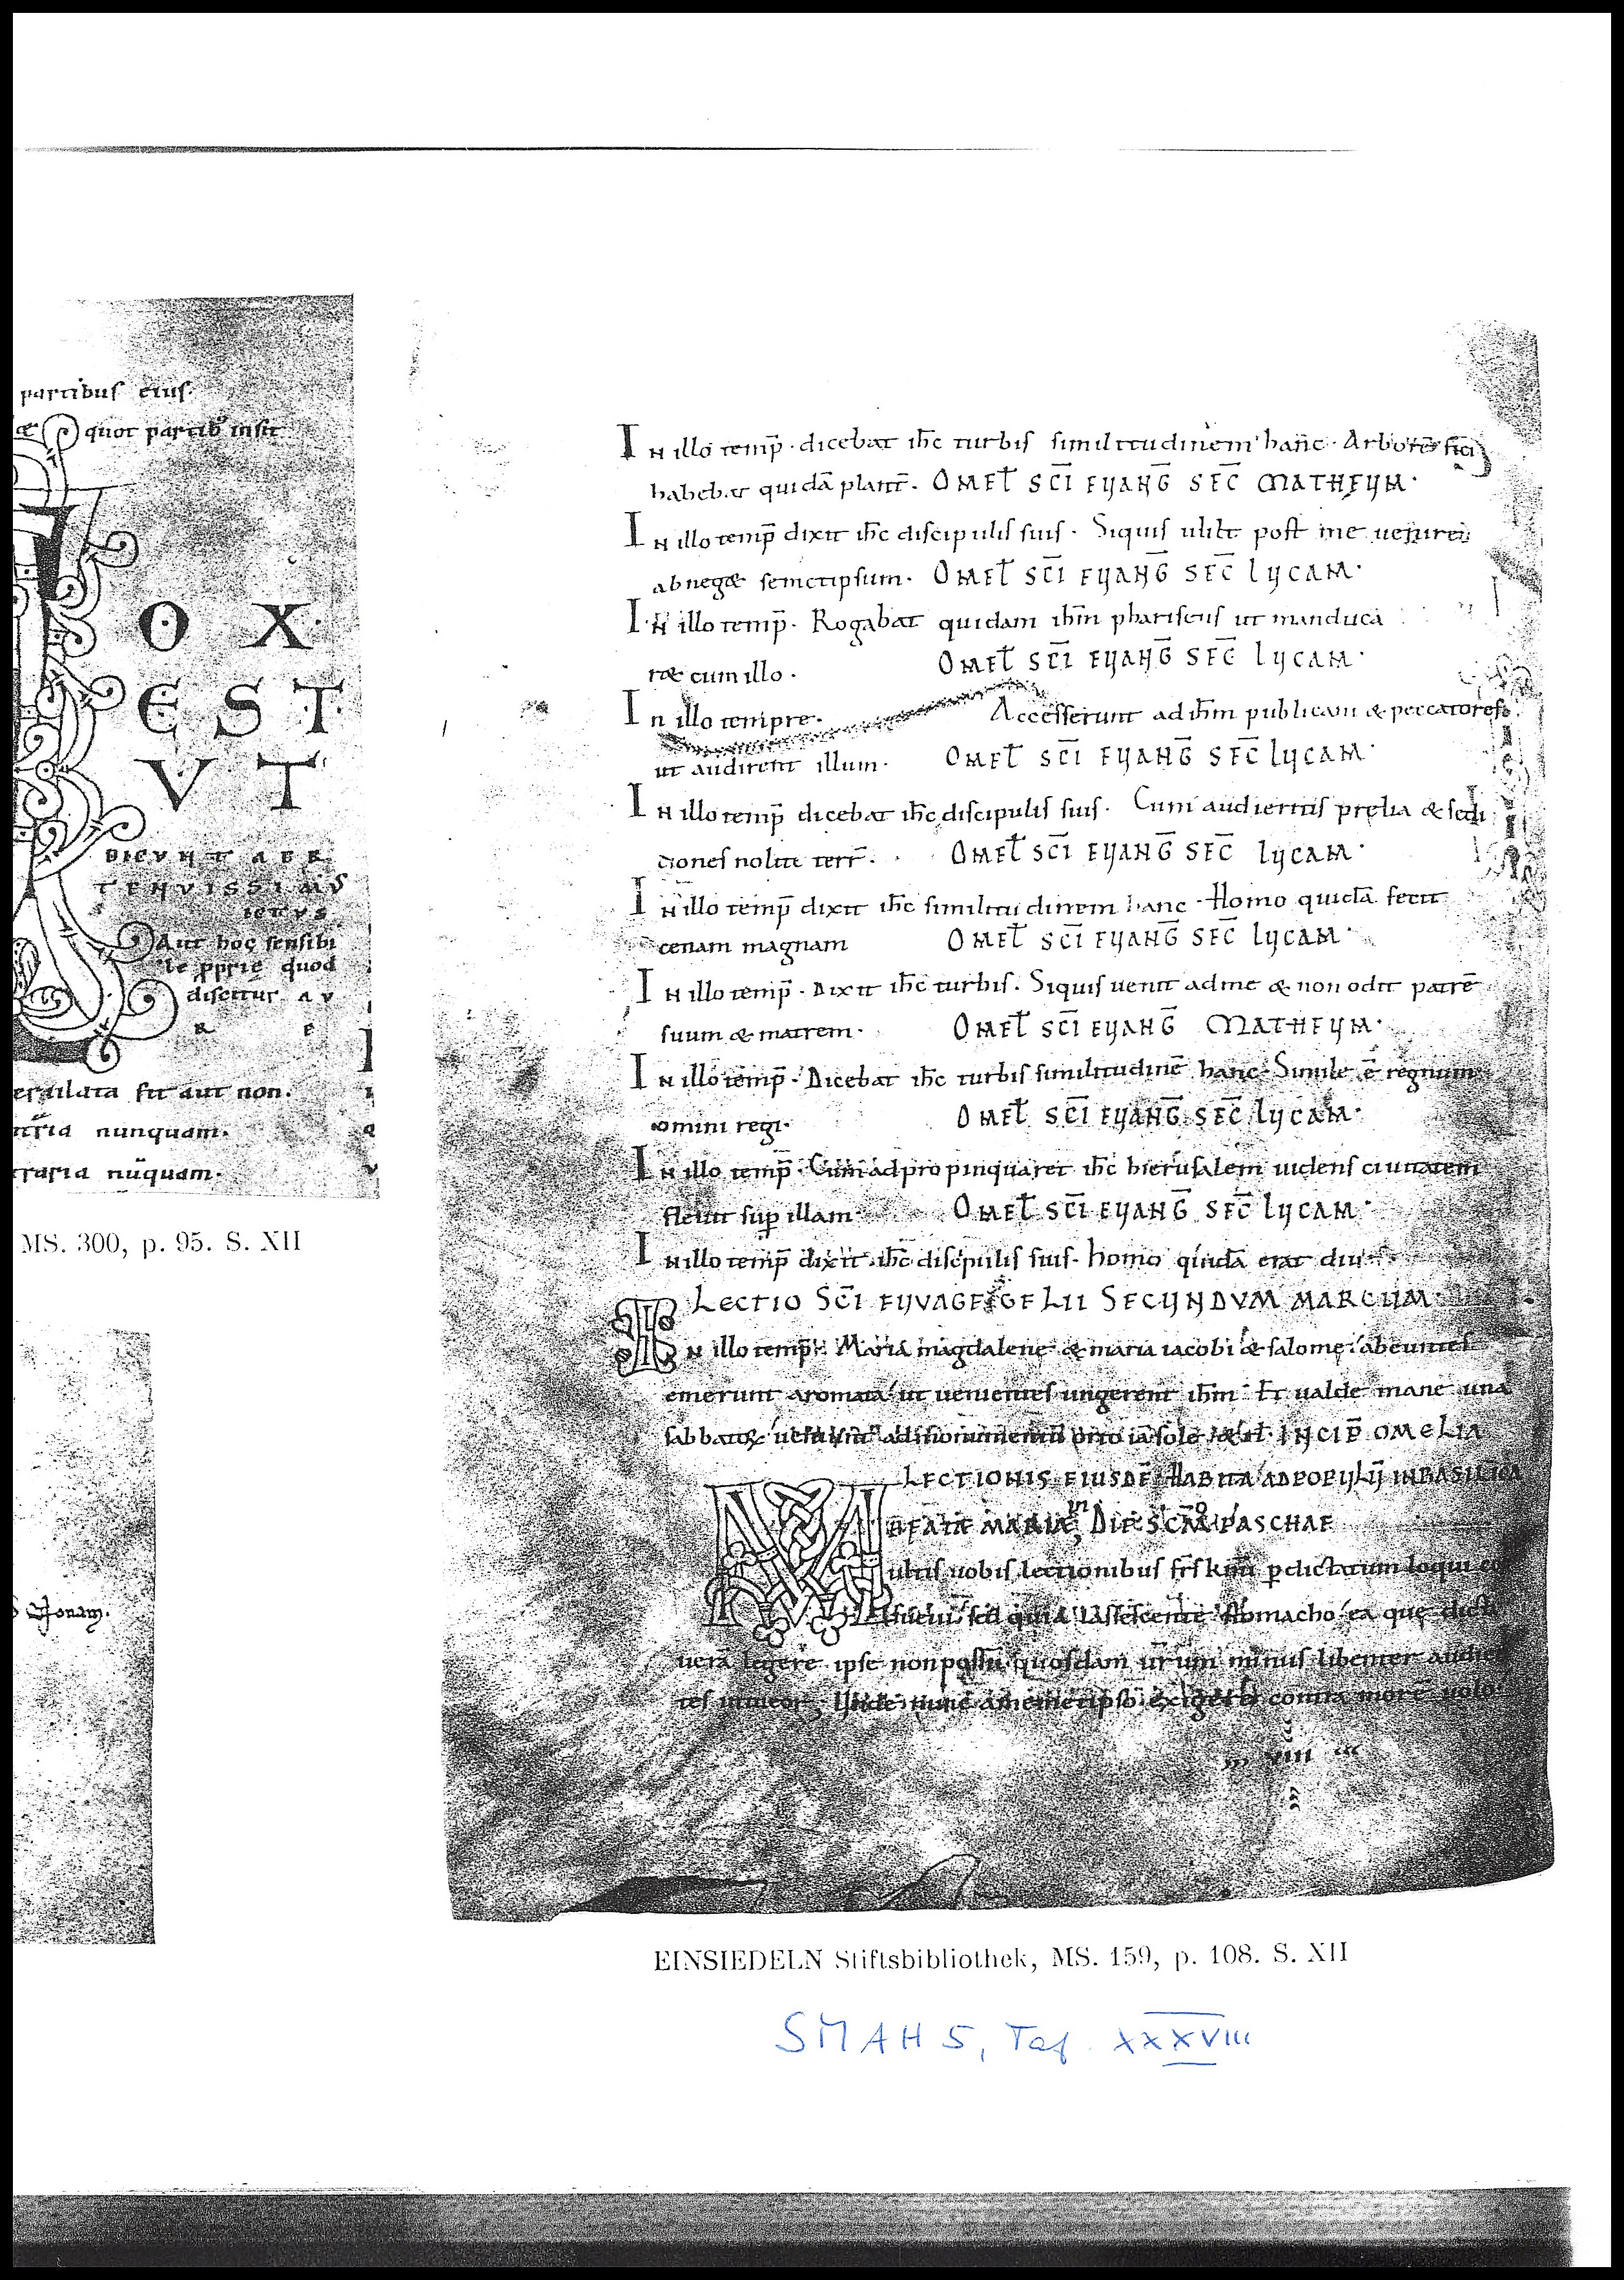 partibus eius.
quot partib9 insit
OX
EST
VT
DICVNT AER
TENVISSIMVS
ICTVS
Aut hoc sensibi
le pprie quod
discitur AV
R E
aut non.
nunquam.
nūquam.
MS. 300, p. 95. S. XII
Jonam.
In illo temp̄. dicebat ih̄c turbis similitudinem hanc. Arborē fici
habebat quidā plant̄. OMEL̄ SC̄I EVANḠ SEC̄ MATHEVM.
In illo temp̄ dixit ih̄c discipulis suis. Siquis uult post me uenire
abneget semetipsum. OMEL̄ SC̄I EVANḠ SEC̄ LVCAM.
In illo temp̄. Rogabat quidam ih̄m phariseus ut manduca
ret cum illo. OMEL̄ SC̄I EVANḠ SEC̄ LVCAM.
In illo tempre. Accesserunt ad ih̄m publicani & peccatores
ut audirent illum. OMEL̄ SC̄I EVANḠ SEC̄ LVCAM.
In illo temp̄ dicebat ih̄c discipulis suis. Cum audieritis prelia & sedi
tiones nolite terr̄. OMEL̄ SC̄I EVANḠ SEC̄ LVCAM.
In illo temp̄ dixit ih̄c similitudinem hanc. Homo quidā fecit
cenam magnam OMEL̄ SC̄I EVANḠ SEC̄ LVCAM.
In illo temp̄. Dixit ih̄c turbis. Siquis uenit ad me & non odit patrē
suum & matrem. OMEL̄ SC̄I EVANḠ MATHEVM.
In illo temp̄. Dicebat ih̄c turbis similitudinē hanc. Simile ē regnum
omini regi. OMEL̄ SC̄I EVANḠ SEC̄ LVCAM.
In illo temp̄. Cum adpropinquaret ih̄c hierusalem uidens ciuitatem
fleuit sup̄ illam. OMEL̄ SC̄I EVANḠ SEC̄ LVCAM.
In illo temp̄ dixit ih̄c discipulis suis. homo quidā erat diu
LECTIO SC̄I SECVNDVM MARCUM.
In illo temp̄. Maria magdalene & maria iacobi & salome abeuntes
emerunt aromata ut uenientes ungerent ih̄m. Et ualde mane una
sabbatoꝝ orto iā sole INCIP̄ OMELIA
LECTIONIS EIUSDĒ HABITA AD POPVLV̄ IN BASILICA
BEATAE MARIAE IN DIE SC̄O PASCHAE
Multis uobis lectionibus fr̄s km̄i p dictatum loqui
sed quia lassescente stomacho ea que
uerā legere ipse non possū quosdam ur̄um minus libenter
contra morē uolo.
VIII
EINSIEDELN Stiftsbibliothek, MS. 159, p. 108. S. XII
SMAH 5, Taf. XXXVIII